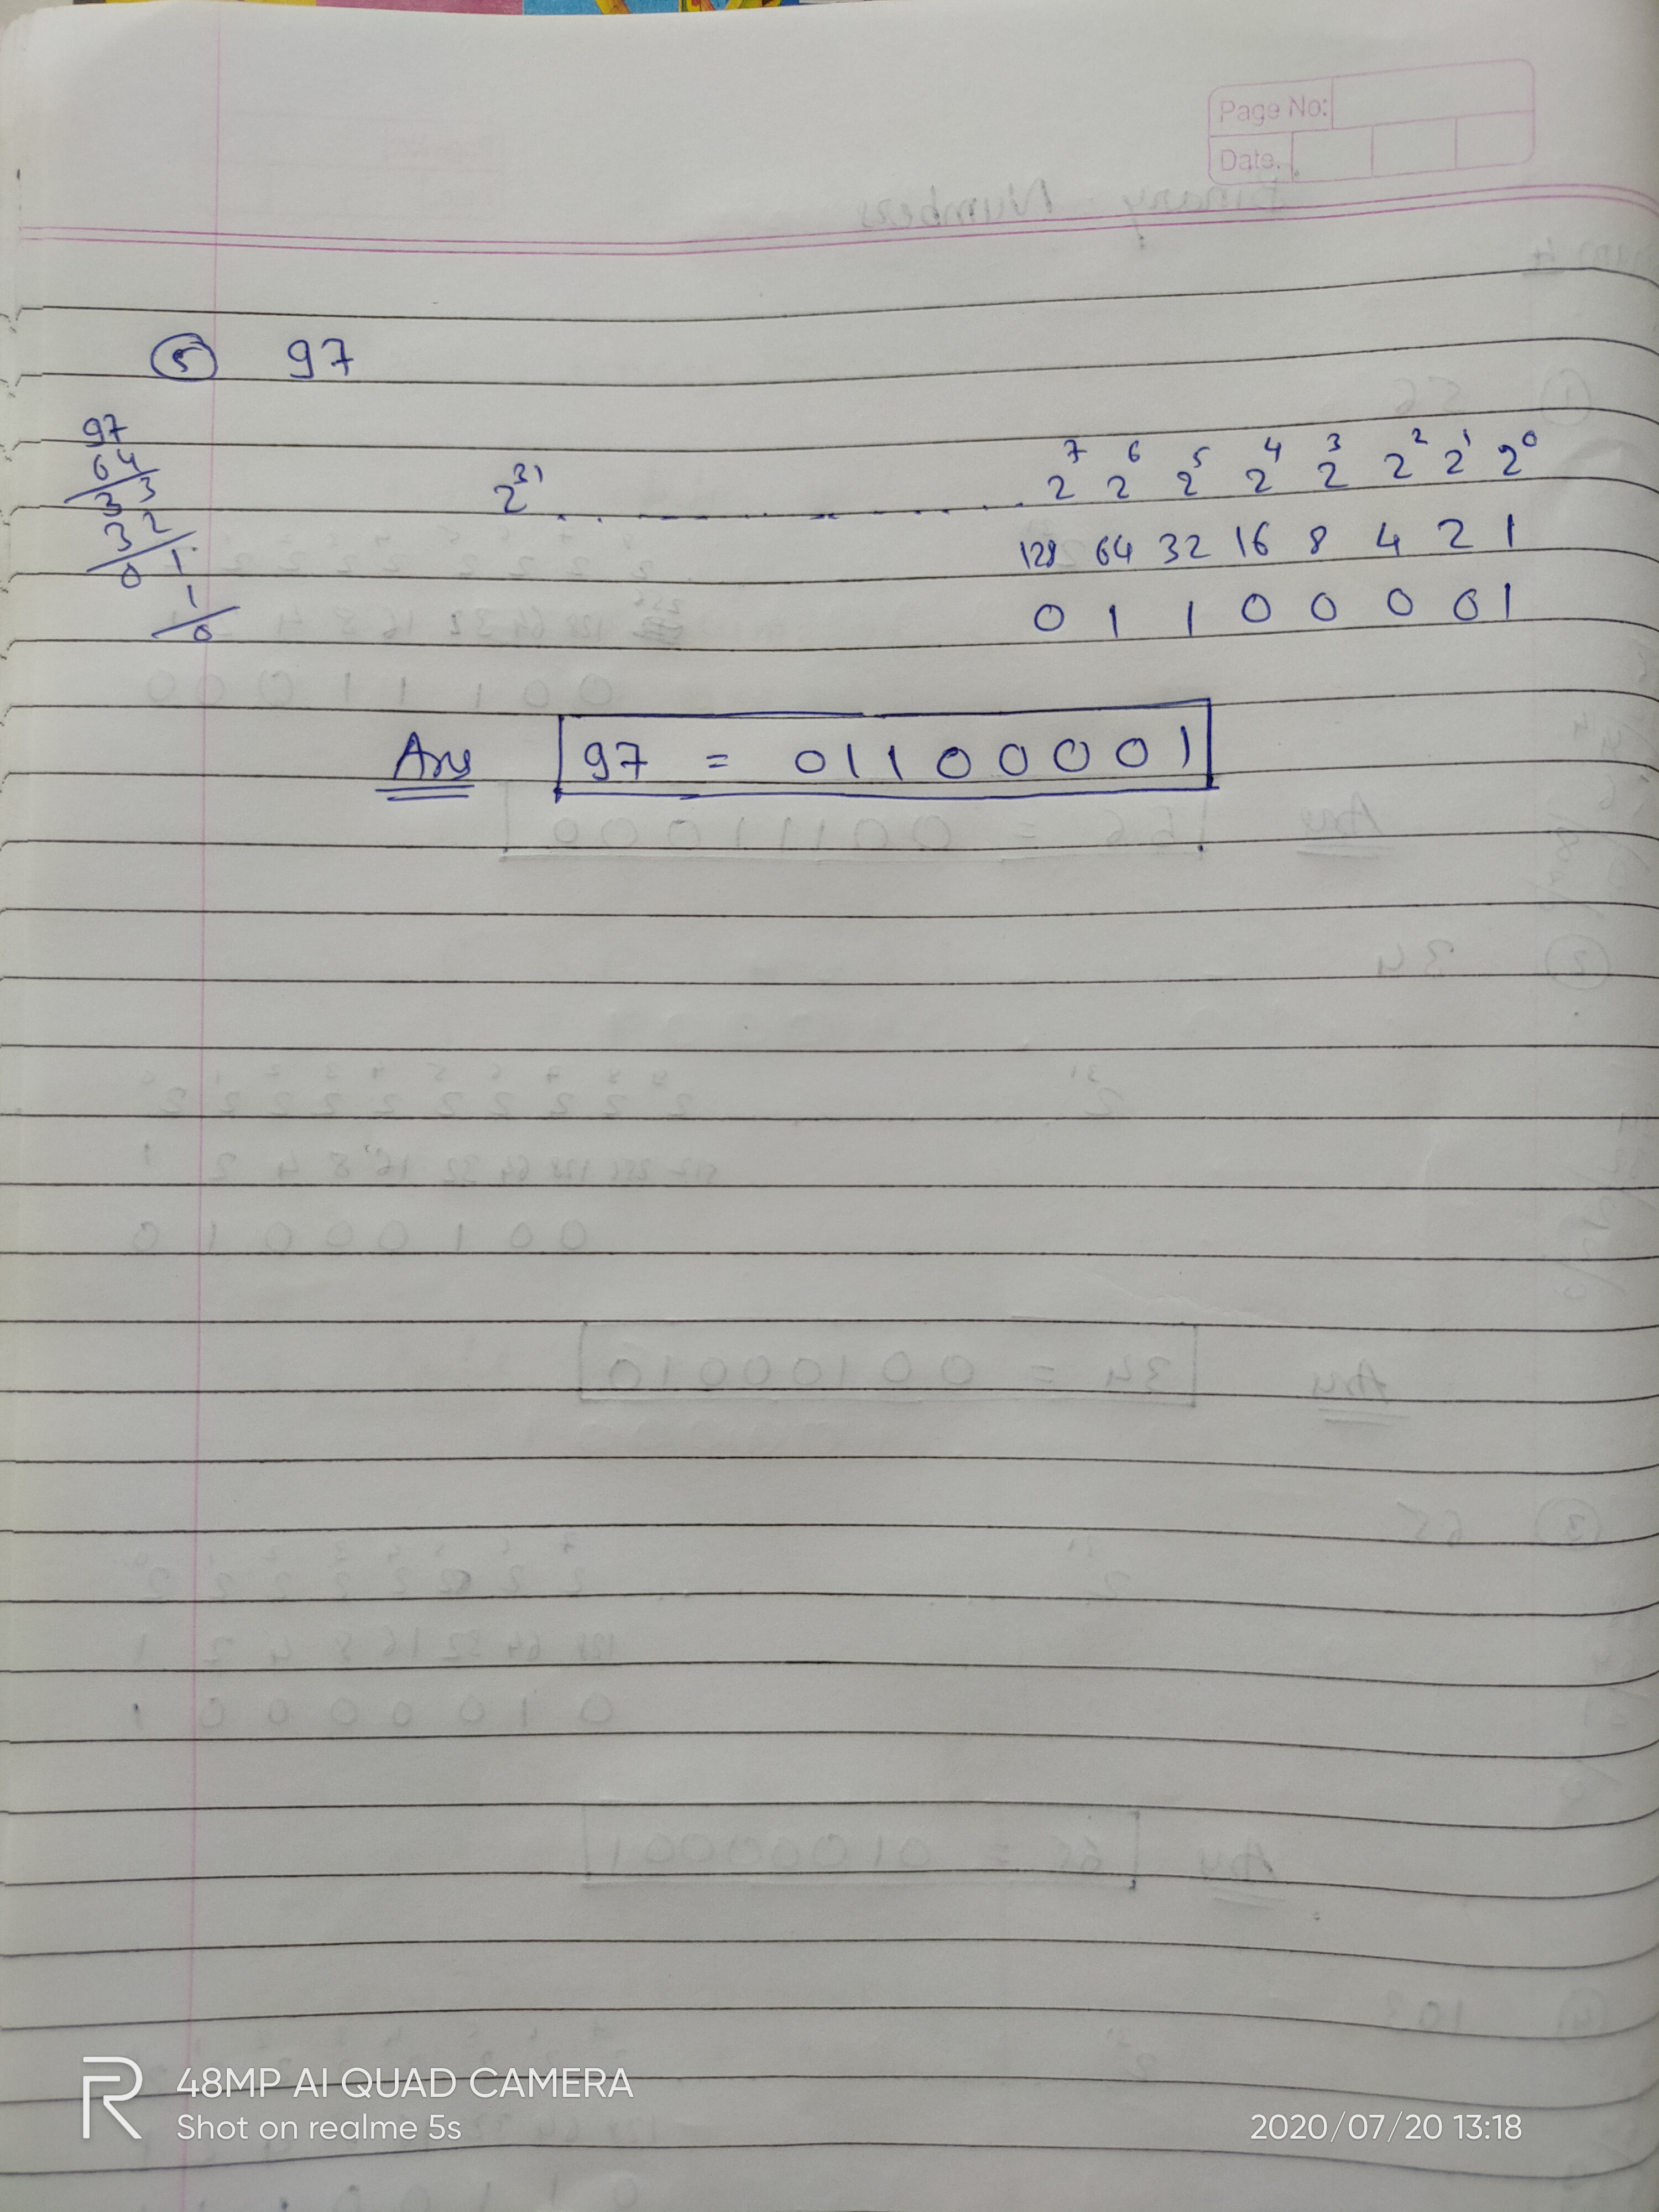 Page No:
Date.
5 97
97
64
33
32
01
1
0
2^31 . . . . . . . . 2^7 2^6 2^5 2^4 2^3 2^2 2^1 2^0
128 64 32 16 8 4 2 1
0 1 1 0 0 0 0 1
Ans 97 = 01100001
R 48MP AI QUAD CAMERA
Shot on realme 5s
2020/07/20 13:18